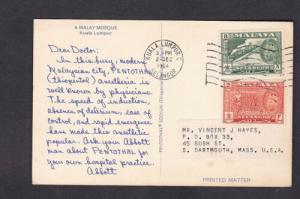 A MALAY MOSQUE
Kuala Lumpur
Dear Doctor:
In this busy, modern
Malaysian city, PENTOTHAL
(thiopental) anesthesia is
well known by physicians.
The speed of induction,
absence of delirium, ease of
control, and rapid emergence
have made this anesthetic
popular. Ask your Abbott
man about PENTOTHAL for
your own hospital practice.
Abbott
KUALA LUMPUR
PM
2 DEC
1964
SELANGOR
SELANGOR
MR. VINCENT J HAYES,
45 BUSH ST.
S. DARTMOUTH, MASS., U.S.A.
PRINTED MATTER